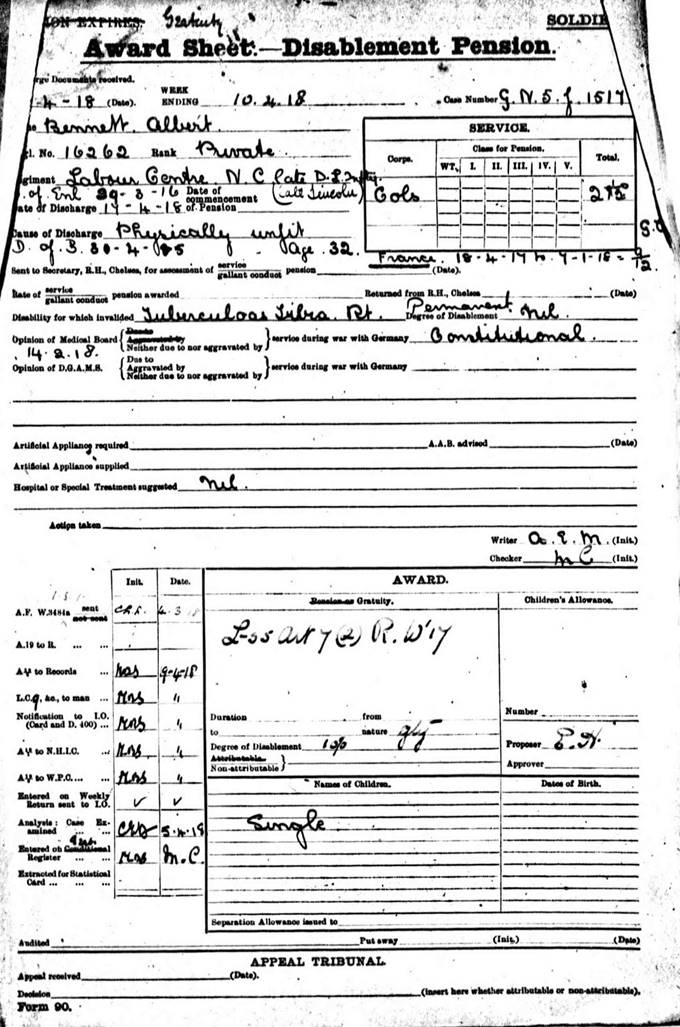 ON EXPIRES. Gratuity SOLDIE
Award Sheet.—Disablement Pension.
rge Documents received.
-4-18 (Date). WEEK ENDING 10.4.18 Case Number G.N.S.f. 1517
Bennett. Albert.
l. No. 16262 Rank Private
giment Labour Centre. N.C (late D.L.Infty.
of Enl 29-3-16 Date of commencement of Pension (late Lincoln)
ate of Discharge 17-4-18
Cause of Discharge Physically unfit
D. of B. 30-4-85 Age 32.
SERVICE.
Corps. Class for Pension. Total.
WT. I. II. III. IV. V.
Cols
France. 18-4-17 to 7-1-18 = 9/12
Sent to Secretary, R.H., Chelsea, for assessment of service gallant conduct pension (Date).
Rate of service gallant conduct pension awarded Returned from R.H., Chelsea (Date)
Disability for which invalided Tuberculous Tibia Rt. Permanent Degree of Disablement Nil.
Opinion of Medical Board Due to Aggravated by Neither due to nor aggravated by service during war with Germany Constitutional.
14.2.18.
Opinion of D.G.A.M.S. Due to Aggravated by Neither due to nor aggravated by service during war with Germany
Artificial Appliance required A.A.B. advised (Date)
Artificial Appliance supplied
Hospital or Special Treatment suggested Nil.
Action taken
Writer A.E.M. (Init.)
Checker MC (Init.)
Init. Date.
A.F. W.3484a sent not sent 4.3.18
A.19 to R. ... ...
A4 to Records ... 9-4-18
L.C.9, &c., to man ... "
Notification to I.O. (Card and D. 400) ... "
A4 to N.H.I.C. ... "
A4 to W.P.C.... ... "
Entered on Weekly Return sent to I.O. ✓ ✓
Analysis: Case Examined ... ... 5.4.18
Entered on Conditional Register ... ... M.C.
Extracted for Statistical Card ... ... ...
AWARD.
Pension or Gratuity.
L-35 Art 7 (2) R.W'17
Duration from
to nature gty
Degree of Disablement
Attributable
Non-attributable
Children's Allowance.
Number
Proposer E.H.
Approver
Names of Children. Dates of Birth.
Single
Separation Allowance issued to
Audited Put away (Init.) (Date)
APPEAL TRIBUNAL.
Appeal received (Date).
Decision (insert here whether attributable or non-attributable).
Form 90.